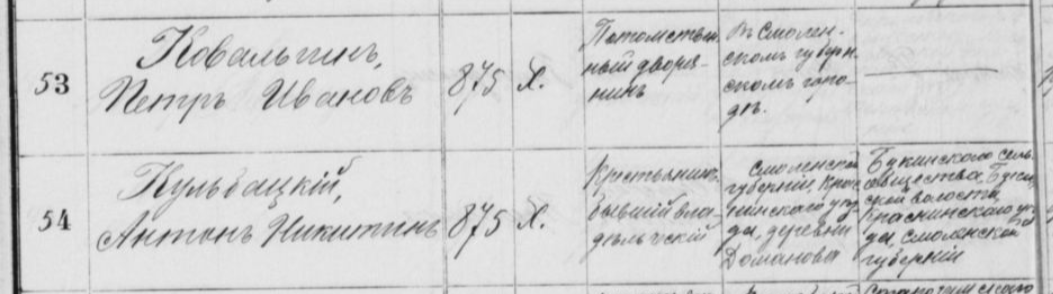 53
Ковальгинъ,
Петръ Ивановъ
875
Х.
Потомствен-
ный дворя-
нинъ
Въ Смолен-
скомъ губерн-
скомъ горо-
дѣ.
54
Кульбацкій,
Антонъ Никитинъ
875
Х.
Крестьянинъ,
бывшій вла-
дѣльческій
Смоленской
губерніи, Крас-
нинскаго уѣз-
да, деревни
Доманова
Букинскаго сель.
общества,
ской волости,
Краснинскаго уѣз-
да, Смоленской
губерніи